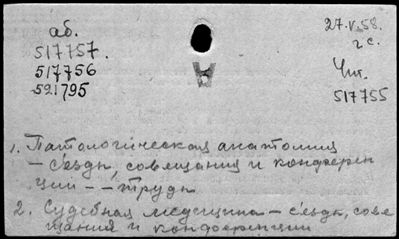 аб.
517757.
517756
592795
27.V.58.
2 с.
Чит.
517755
1. Патологическая анатомия
— съезды, совещания и конферен
ции — — труды
2. Судебная медицина — съезды, сове
щания и конференции